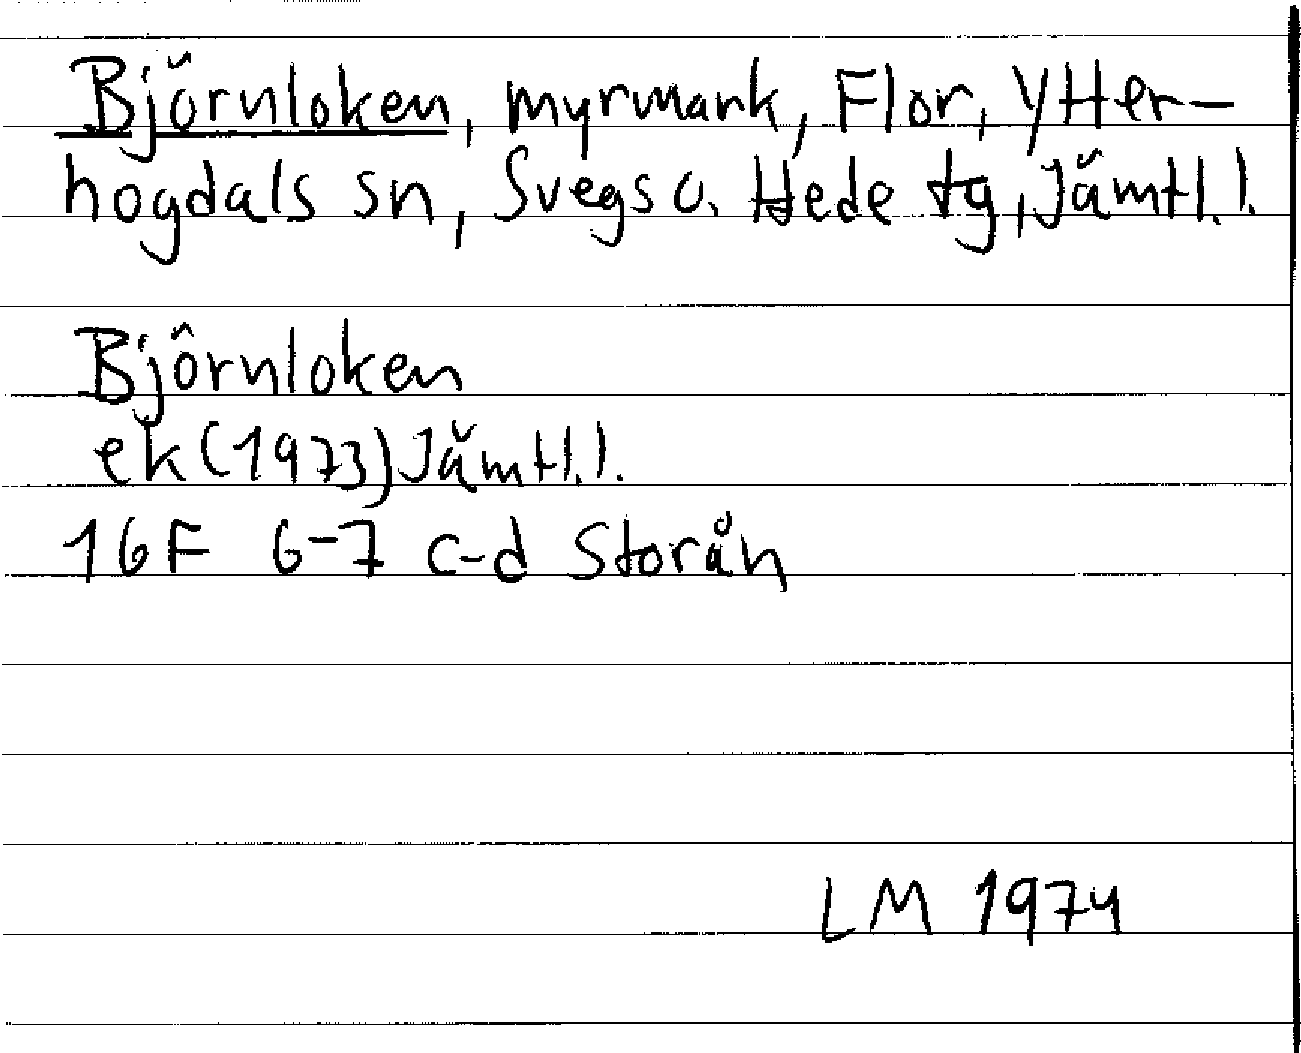 Björnloken, myrmark, Flor, Ytter-
hogdals sn, Svegs o. Hede tg, Jämtl. l.
Björnloken
ek (1973) Jämtl. l.
16F 6-7 c-d Storån
LM 1974